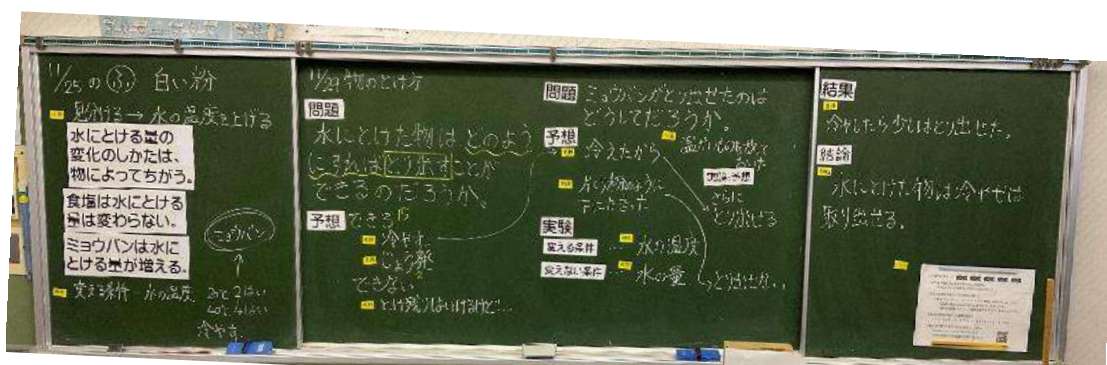 11/25の ふ 白い粉
見分ける→水の温度を上げる
水にとける量の
変化のしかたは、
物によってちがう。
食塩は水にとける
量は変わらない。
ミョウバンは水に
とける量が増える。
ミョウバン
↑
変える条件 水の温度
20℃ 2はい
40℃ 4はい
冷やす
11/29 物のとけ方
問題
水にとけた物はどのよう
にすればとり出すことが
できるのだろうか。
予想 できる 15
冷やす
じょう発
できない
とけ残りはいけるけど…
問題 ミョウバンがとり出せたのは
どうしてだろうか。
予想
冷えたから
さらに
とり出せる
実験
変える条件 … 水の温度
変えない条件 … 水の量
とり出せない
結果
冷やしたら少しはとり出せた。
結論
水にとけた物は冷やせば
取り出せる。